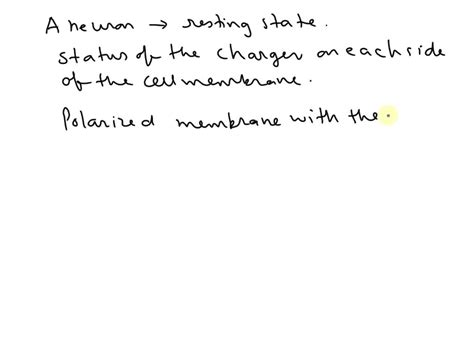 A neuron → resting state.
Status of the charger on each side
of the cell membrane.
Polarized membrane with the